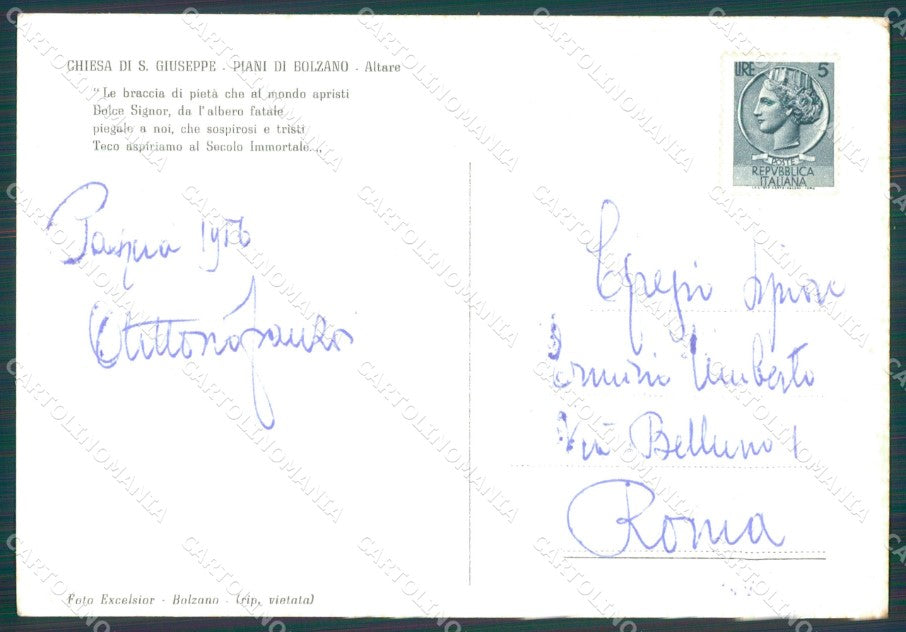 CHIESA DI S. GIUSEPPE - PIANI DI BOLZANO - Altare
"Le braccia di pietà che al mondo apristi
Dolce Signor, da l'albero fatale
piegale a noi, che sospirosi e tristi
Teco aspiriamo al Secolo Immortale.„
Pasqua 1956
Foto Excelsior - Bolzano - (rip. vietata)
LIRE 5
POSTE
REPVBBLICA
ITALIANA
Egregio Signore
Erminio Umberto
Via Belluno 1
Roma
CARTOLINOMANIA